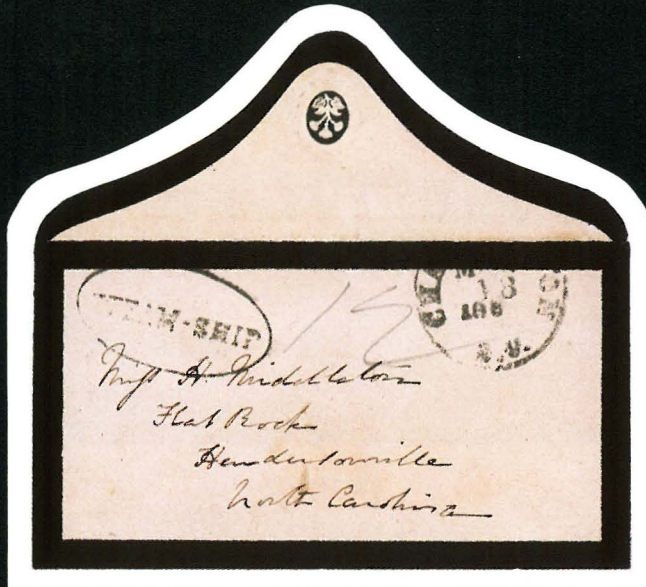 STEAM-SHIP
12
18
10 c
S.C.
Miss H. Middleton
Flat Rock
Hendersonville
North Carolina